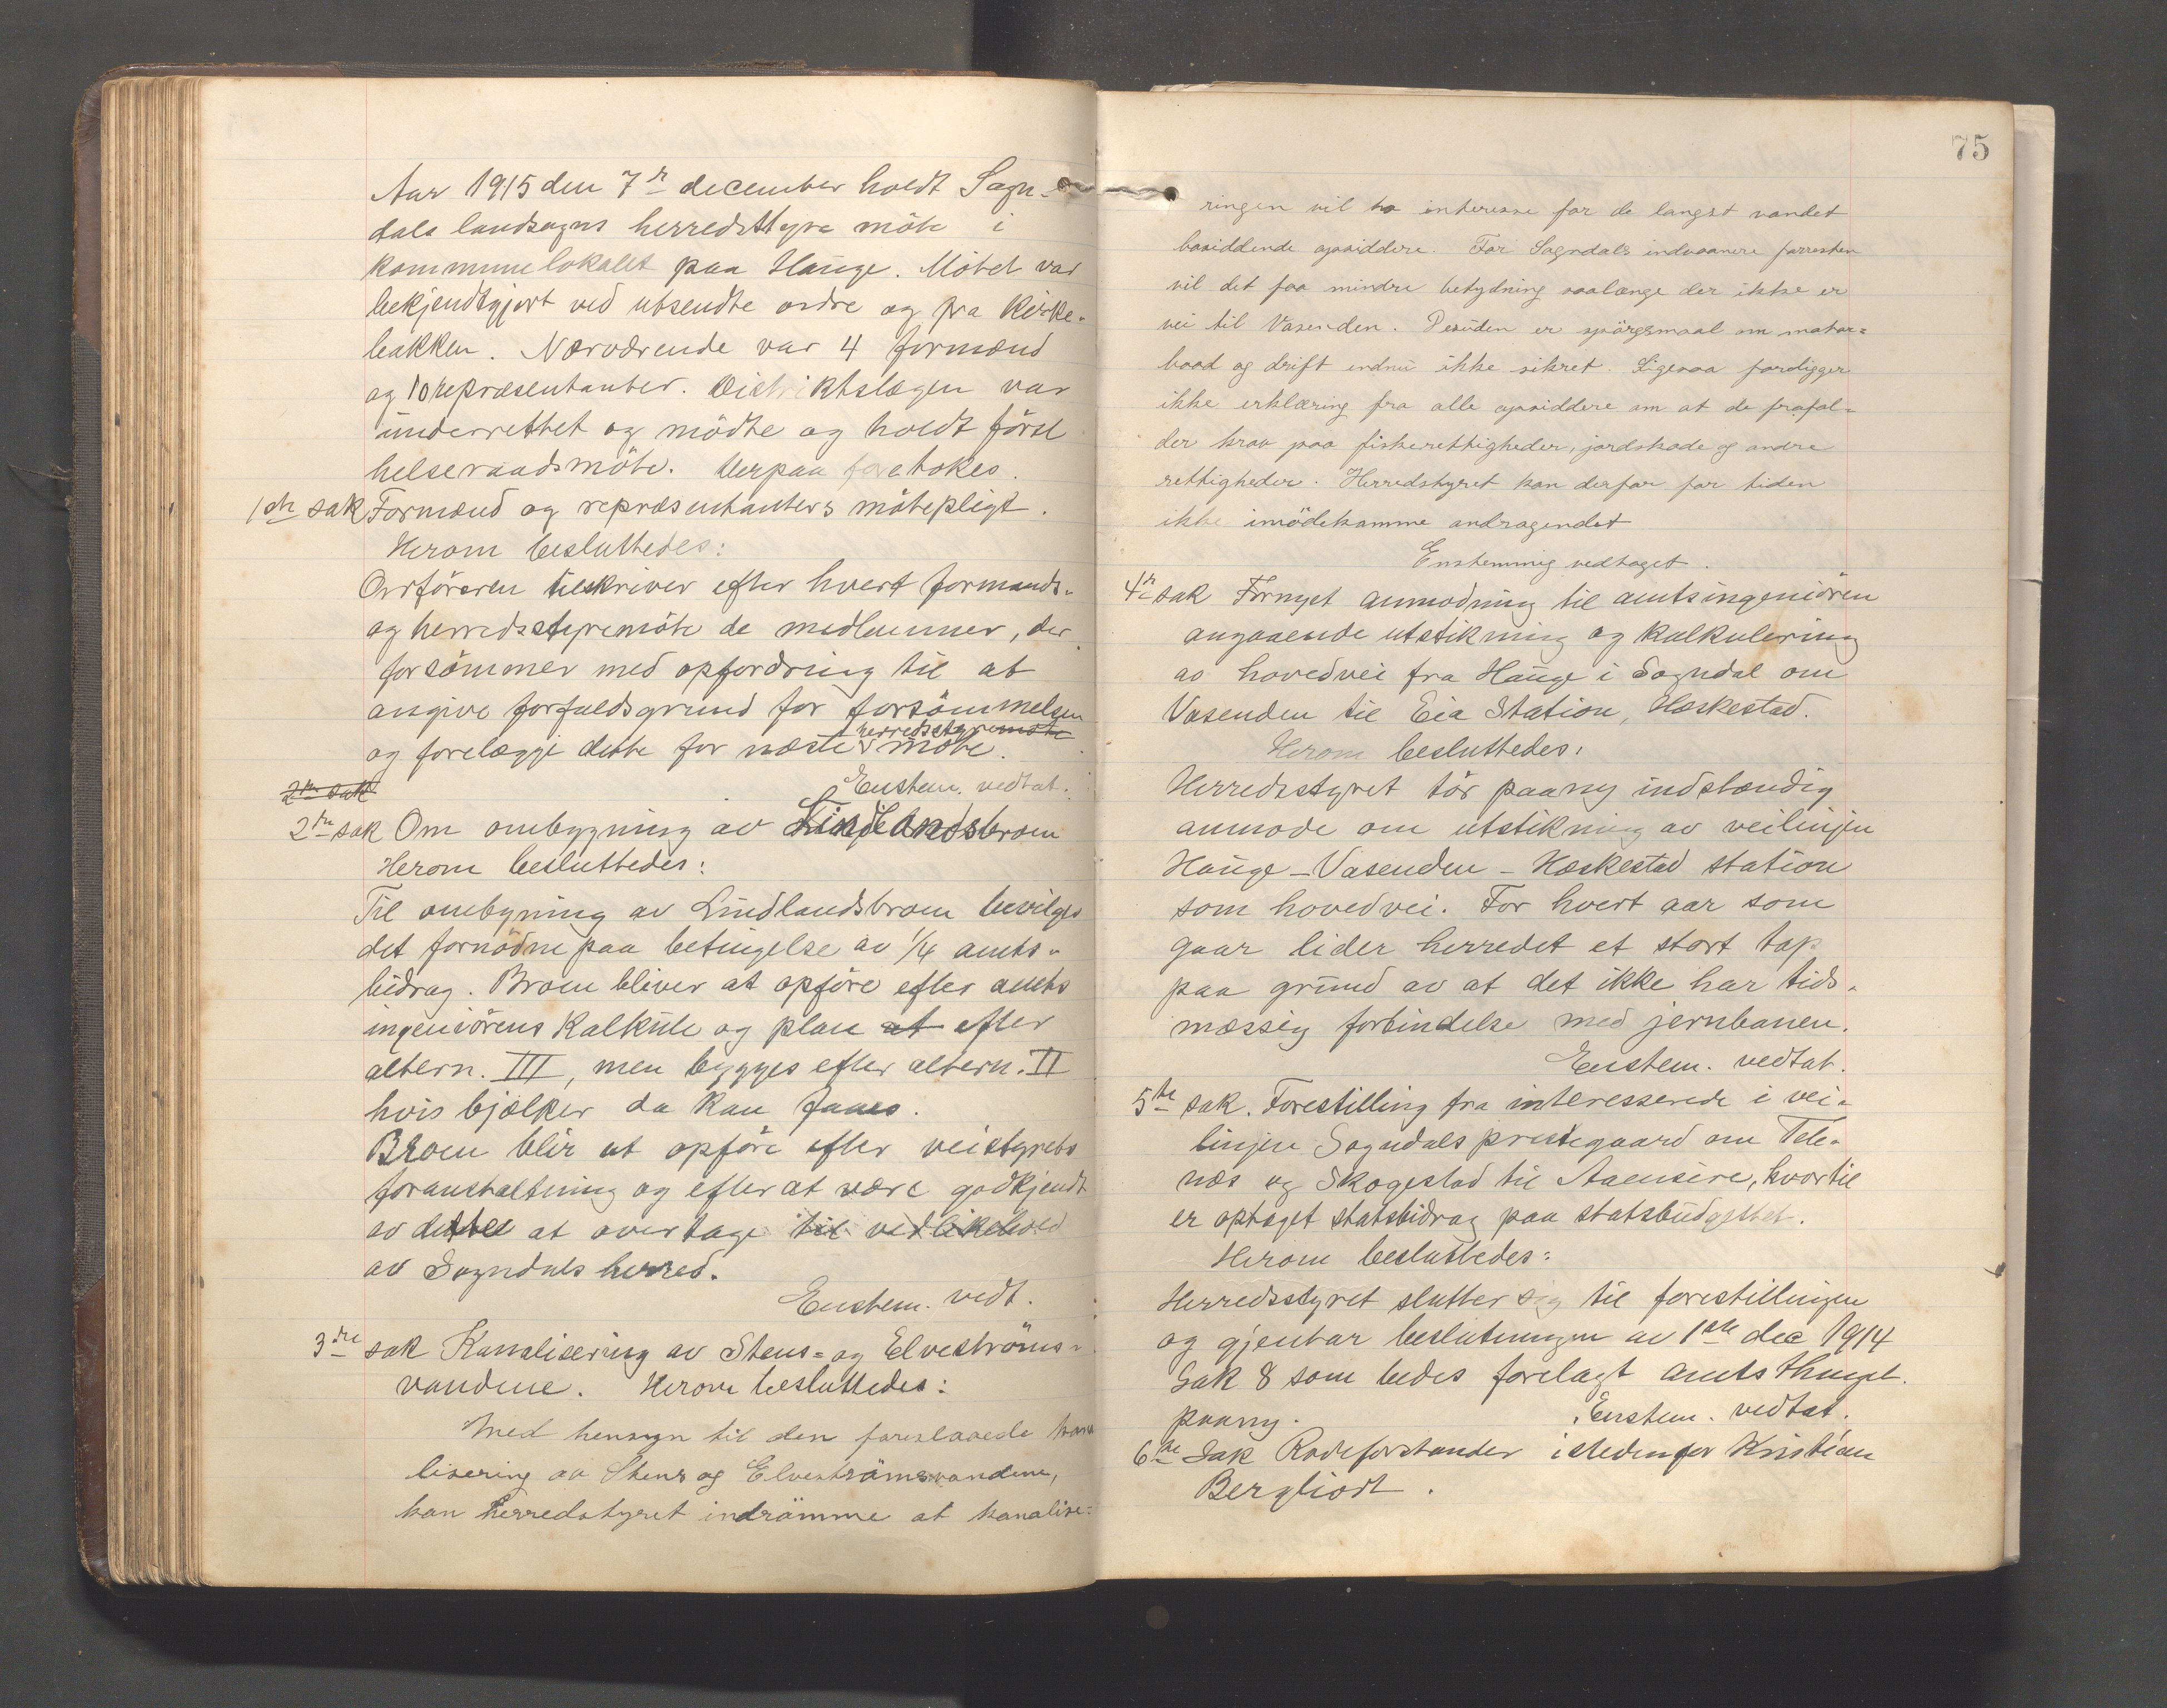 Aar 1915 den 7de december holdt Sogn-
dals landsogns herredsstyre möte i
kommunelokalet paa Hauge. Mötet var
bekjendtgjort ved utsendte ordre og fra kirke-
bakken. Nærværende var 4 formænd
og 10 repræsentanter. Distriktslægen var
underrettet og mödte og holdt först
helseraadsmöte. Derpaa foretokes.
1ste sak Formænd og repræsentanters mötepligt.
Herom besluttedes:
Ordföreren tilskriver efter hvert formands-
og herredsstyremöte de medlemmer, der
forsömmer med opfordring til at
angive forfaldsgrund for forsömmelsen
herredsstyremöte
og forelægge dette for næste möte.
Enstem. vedtat.
2den sak
2den sak Om ombygning av Lindlandsbroen
Herom besluttedes:
Til ombygning av Lindlandsbroen bevilges
det fornödne paa betingelse av 1/4 amts-
bidrag. Broen bliver at opföre efter amts
ingeniörens kalkule og plan at efter
altern. III, men bygges efter altern. II
hvis bjelker da kan faaes.
Broen blir at opföre efter veistyrets
foranstaltning og efter at være godkjendt
av dette at overtage til vedlikehold
av Sogndals herred.
Enstem. vedt.
3die sak Kanalisering av Stens- og Elveströms-
vandene. Herom besluttedes:
Med hensyn til den foreslaaede kana
lisering av Stens og Elveströmsvandene,
kan herredstyret indrömme at kanalise-
75
ringen vil ha interesse for de langst vandet
boesiddende opsiddere. For Sogndals indvaanere forresten
vil det faa mindre betydning saalænge der ikke er
vei til Vasenden. Desuden er spörgsmaal om motor-
baad og drift endnu ikke sikret. Ligesaa foreligger
ikke erklæring fra alle opsiddere om at de frafal-
der krav paa fiskerettigheder, jordskade og andre
rettigheder. Herredstyret kan derfor for tiden
ikke imödekomme andragendet
Enstemmig vedtaget.
4de sak Fornyet anmodning til amtsingeniören
angaaende utstikning og kalkulering
av hovedvei fra Hauge i Sogndal om
Vasenden til Eia Station, Heskestad.
Herom besluttedes:
Herredsstyret tör paany indstændig
anmode om utstikning av veilinjen
Hauge - Vasenden - Heskestad station
som hovedvei. For hvert aar som
gaar lider herredet et stort tap
paa grund av at det ikke har tids-
mæssig forbindelse med jernbanen.
Enstem. vedtat.
5te sak. Forestilling fra interesserede i vei-
linjen Sogndals prestegaard om Tele-
næs og Skogestad til Aaensire, hvortil
er optaget statsbidrag paa statsbudgettet.
Herom besluttedes:
Herredsstyret slutter sig til forestillingen
og gjentar beslutningen av 1ste dec 1914
Sak 8 som bedes forelagt amtsthinget
paany. Enstem. vedtat.
6te Sak Rodeforstander istedenfor Kristian
Bergliodt.